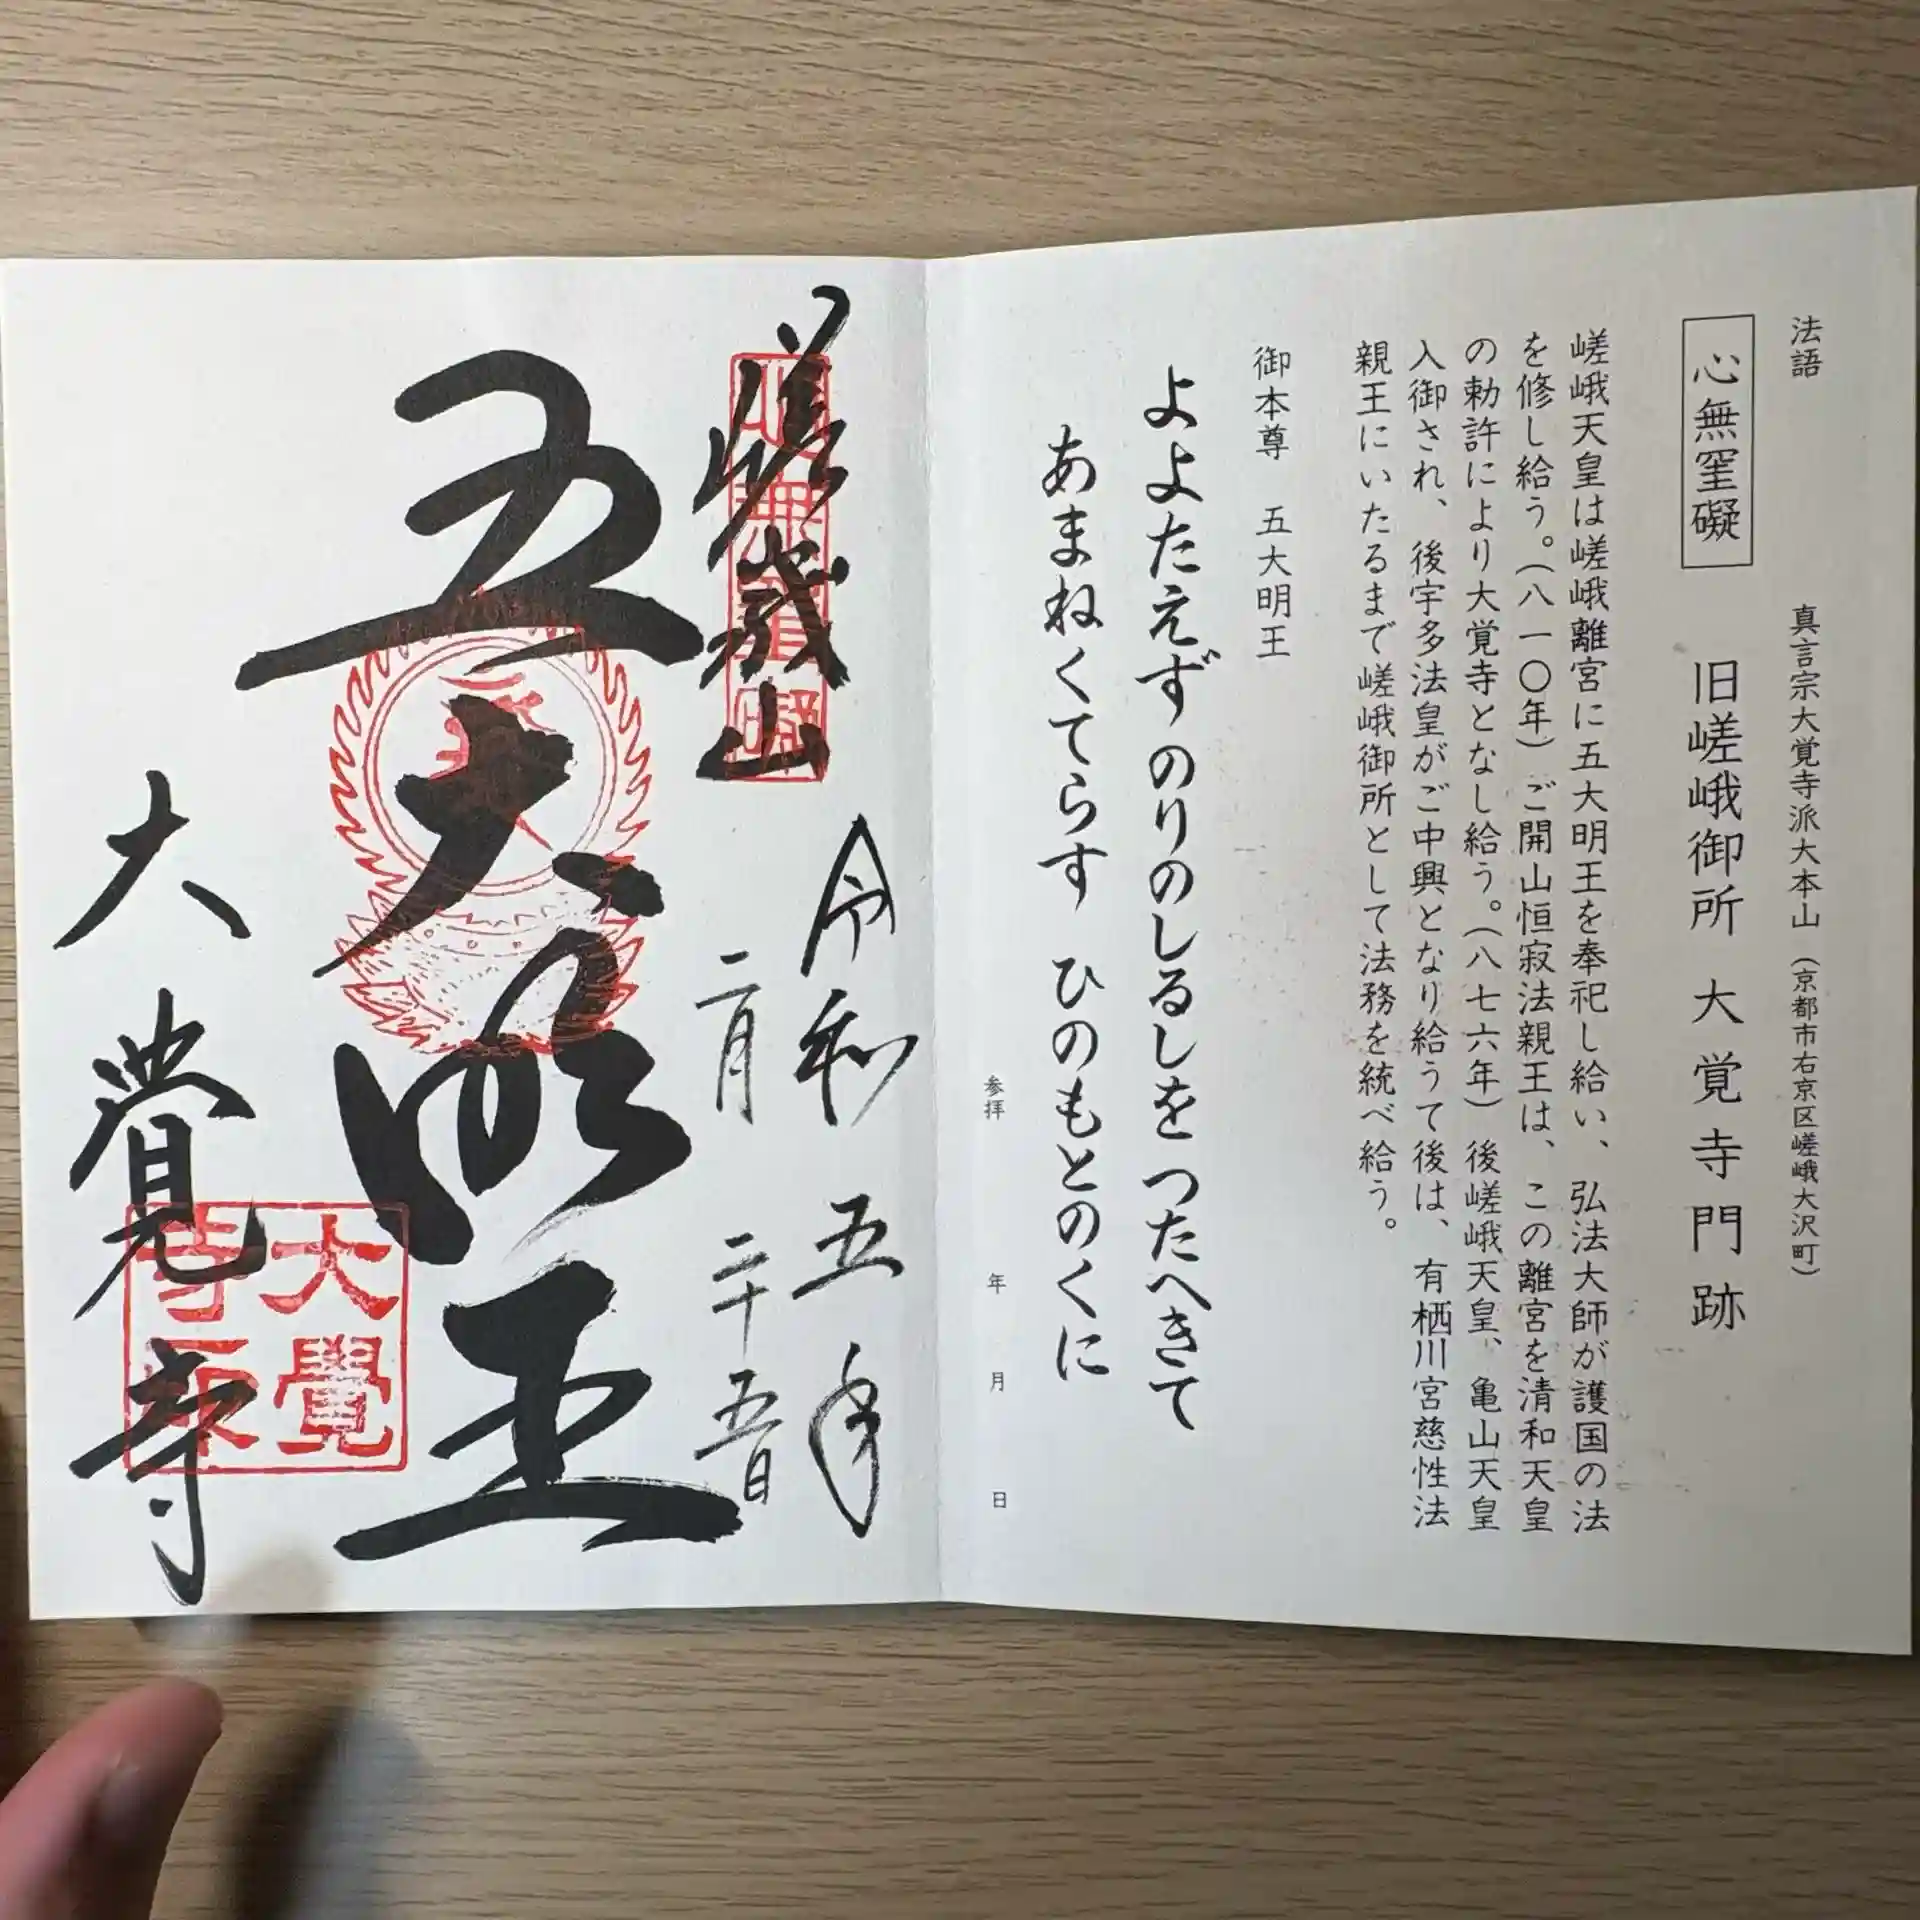 法語
心無罣礙
真言宗大覚寺派大本山（京都市右京区嵯峨大沢町）
旧嵯峨御所 大覚寺門跡
嵯峨天皇は嵯峨離宮に五大明王を奉祀し給い、弘法大師が護国の法
を修し給う。（八一〇年）ご開山恒寂法親王は、この離宮を清和天皇
の勅許により大覚寺となし給う。（八七六年）後嵯峨天皇、亀山天皇
入御され、後宇多法皇がご中興となり給うて後は、有栖川宮慈性法
親王にいたるまで嵯峨御所として法務を統べ給う。
御本尊 五大明王
よよたえず のりのしるしを つたへきて
あまねくてらす ひのもとのくに
参拝 年 月 日
嵯峨山
心無罣礙
令和五年
二月二十五日
五大明王
大覺寺
大覺
寺印